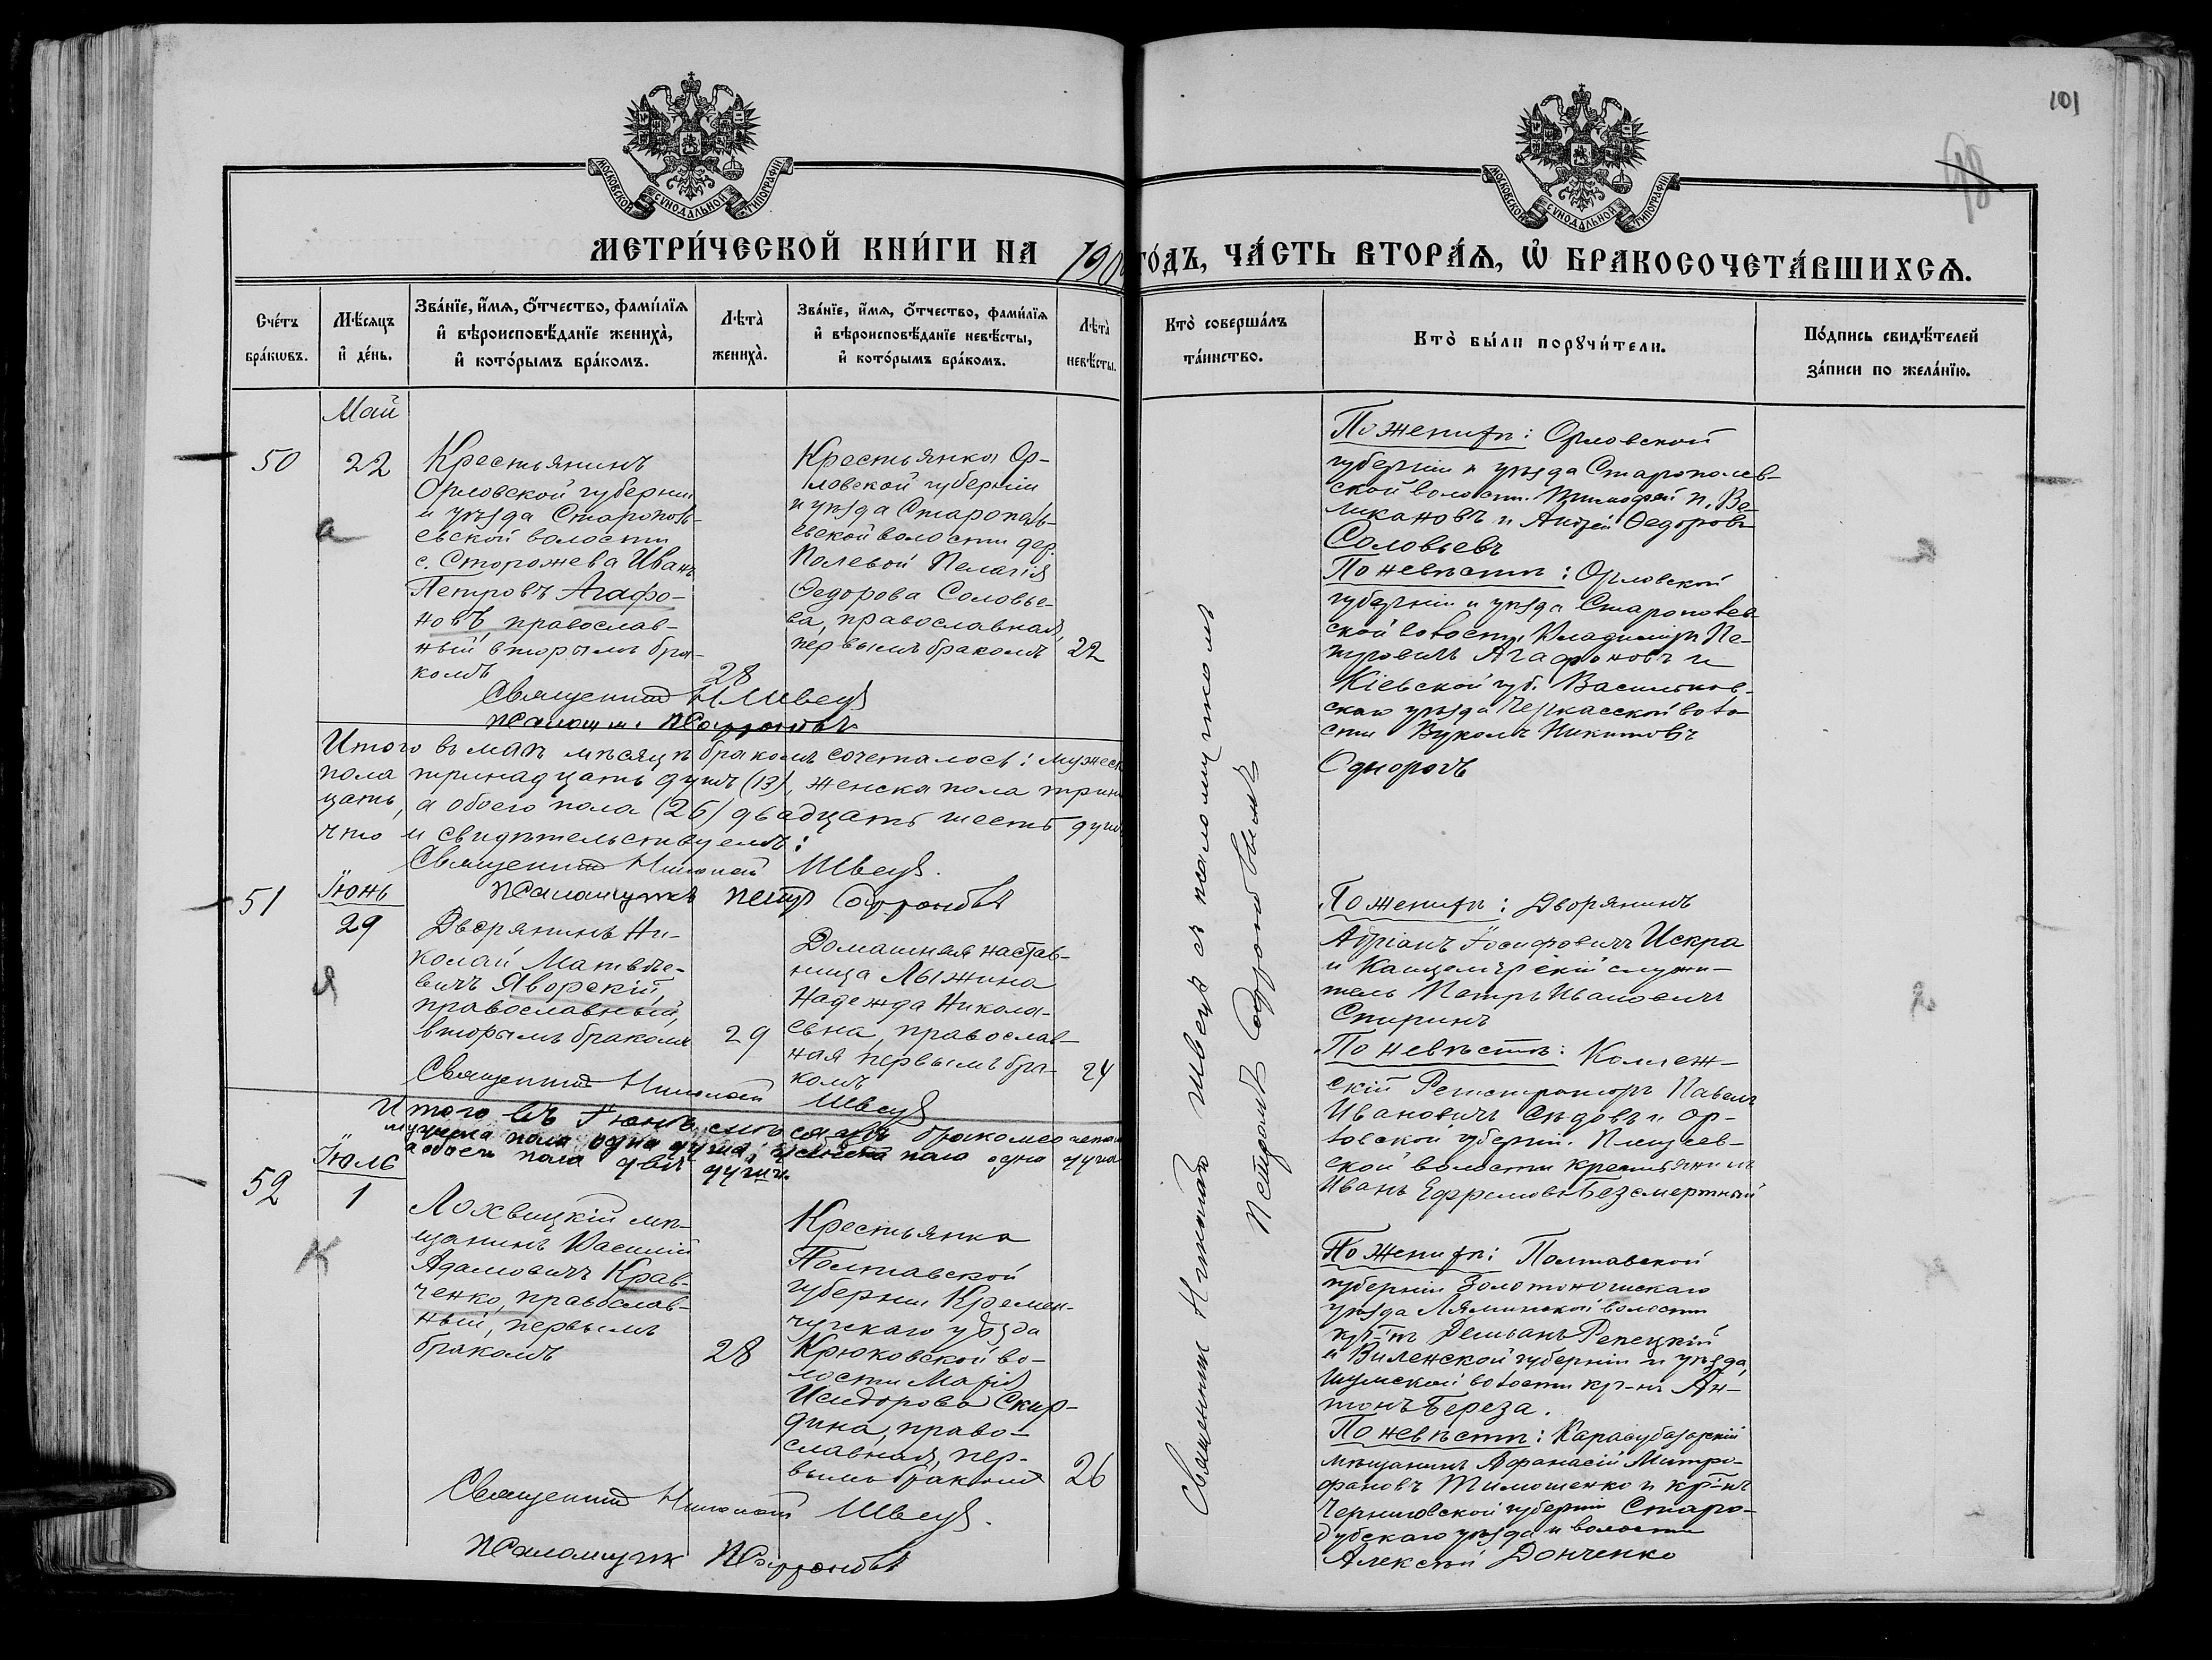 101
98
МОСКОВСКОЙ СѴНОДАЛЬНОЙ ТИПОГРАФІИ
МОСКОВСКОЙ СѴНОДАЛЬНОЙ ТИПОГРАФІИ
МЕТРИ́ЧЕСКОЙ КНИ́ГИ НА 190
ГО́ДЪ, ЧА́СТЬ ВТОРА́Ѧ, Ѽ БРАКОСОЧЕТА́ВШИХСѦ.
Сче́тъ
бра́кѡвъ.
Мѣ́сяцъ
и҆ де́нь.
Зва́нїе, и҆́мѧ, ѻ҆́тчество, фами́лїѧ
и҆ вѣроисповѣ́данїе женихà,
и҆ кото́рымъ бра́комъ.
Лѣтà
женихà.
Зва́нїе, и҆́мѧ, ѻ҆́тчество, фами́лїѧ
и҆ вѣроисповѣ́данїе невѣ́сты,
и҆ кото́рымъ бра́комъ.
Лѣтà
невѣ́сты.
Кто̀ соверша́лъ
та́инство.
Кто̀ бы́ли порꙋчи́тели.
По́дпись свидѣ́телей
за́писи по жела́нїю.
Май
50
22
а
Крестьянинъ
Орловской губерніи
и уѣзда Старополь-
евской волости
с. Сторожева Иванъ
Петровъ Агафо-
новъ, православ-
ный вторымъ бра-
комъ
28
Крестьянка Ор-
ловской губерніи
и уѣзда Старополь-
евской волости дер.
Полевой Пелагія
Ѳедорова Соловье-
ва, православная,
первымъ бракомъ
22
Священникъ Н Швецъ
Псаломщ. П Сафроновъ
По женихѣ: Орловской
губерніи и уѣзда Старополев-
ской волости. Тимофей П. Ве-
ликановъ и Андрей Ѳедоровъ
Соловьевъ
По невѣстѣ: Орловской
губерніи и уѣзда Старополев-
ской волости Владиміръ Пе-
тровичъ Агафоновъ и
Кіевской губ. Васильков-
скаго уѣзда Черкасской воло-
сти Вуколъ Никитовъ
Однорогъ
Итого въ маѣ мѣсяцѣ бракомъ сочеталось: мужеск
пола тринадцать душъ (13), женска пола трин
цать, а обоего пола (26) двадцать шесть душ
что и свидѣтельствуемъ:
Священникъ Николай Швецъ.
Псаломщикъ Петръ Сафроновъ
51
Іюнь
29
Я
Дворянинъ Ни-
колай Матвѣе-
вичъ Яворскій,
православный,
вторымъ бракомъ
29
Домашняя настав-
ница Лыжина
Надежда Никола-
евна, православ-
ная первымъ бра-
комъ
24
Священникъ Николай Швецъ
По женихѣ: Дворянинъ
Адріанъ Іосифовичъ Искра
и Канцелярскій служи-
тель Петръ Ивановичъ
Спиринъ
По невѣстѣ: Коллеж-
скій Регистраторъ Павелъ
Ивановичъ Сѣдовъ и Ор-
ловской губерніи.
ской волости крестьянинъ
Иванъ Ефремовъ Безсмертный
Итого въ Іюнѣ мѣсяцѣ бракомъ сочетал
мужска пола одна душа, женска пола одна душа
а обоего пола двѣ души.
52
Іюль
1
К
Лохвицкій мѣ-
щанинъ Василій
Адамовичъ Крав-
ченко, православ-
ный, первымъ
бракомъ
28
Крестьянка
Полтавской
губерніи Кремен-
чугскаго уѣзда
Крюковской во-
лости Марія
Исидорова Скир-
дина, право-
славная, пер-
вымъ бракомъ
26
Священникъ Николай Швецъ.
Псаломщик П Сафроновъ
По женихѣ: Полтавской
губерніи Золотоношскаго
уѣзда Ляминской волости
кр-нъ Демьянъ Репецкій
и Виленской губерніи и уѣзда,
Шумской волости кр-нъ Ан-
тонъ Береза.
По невѣстѣ: Карасубазарскій
мѣщанинъ Афанасій Митро-
фановъ Тимошенко и кр-нъ
Черниговской губерніи Старо-
дубскаго уѣзда и волости
Алексѣй Донченко
Священникъ Николай Швецъ съ псаломщикомъ
Петромъ Сафроновымъ